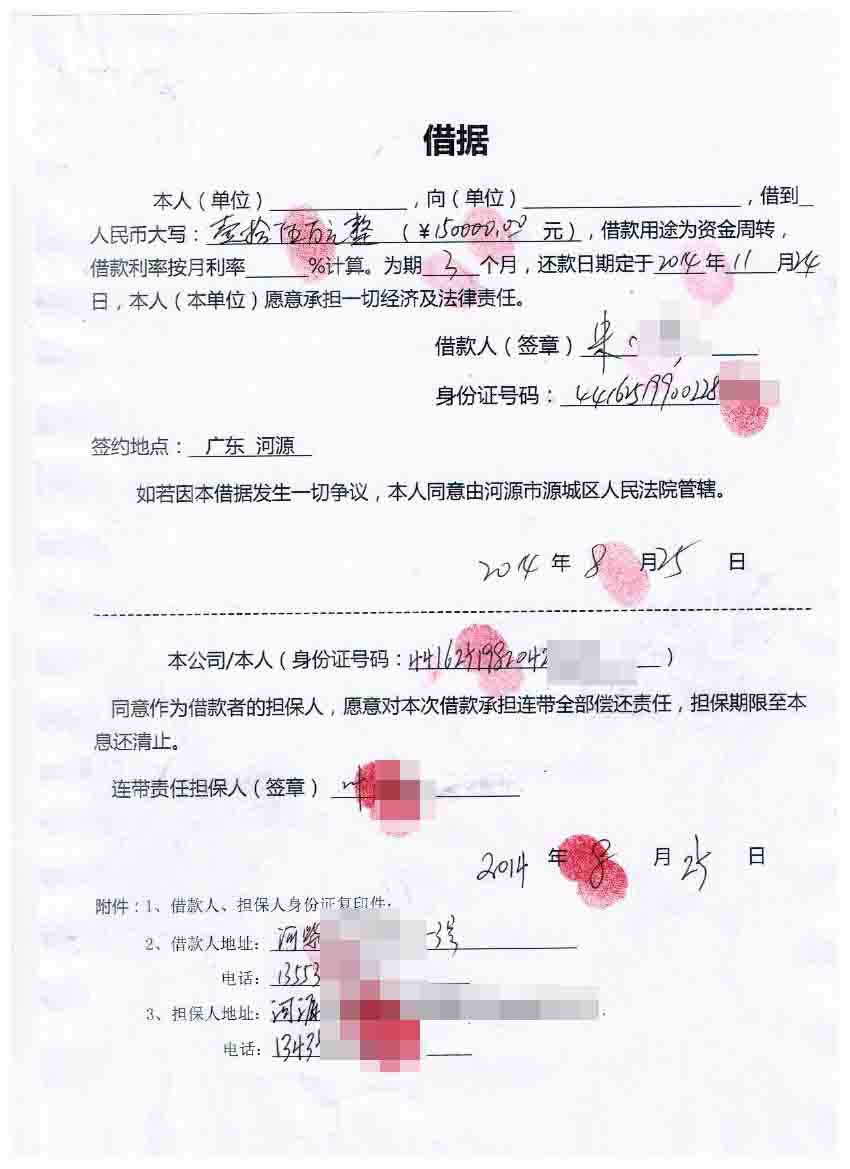 借据
本人（单位）____________，向（单位）____________，借到__
人民币大写：壹拾伍万元整（￥150000.00 元），借款用途为资金周转，
借款利率按月利率______%计算。为期 3 个月，还款日期定于2014年11月24
日，本人（本单位）愿意承担一切经济及法律责任。
借款人（签章）
身份证号码：44162519900228
签约地点：广东 河源
如若因本借据发生一切争议，本人同意由河源市源城区人民法院管辖。
2014 年 8 月25 日
本公司/本人（身份证号码：441625198204２ ）
同意作为借款者的担保人，愿意对本次借款承担连带全部偿还责任，担保期限至本
息还清止。
连带责任担保人（签章）叶
2014 年 8 月 25 日
附件：1、借款人、担保人身份证复印件.
2、借款人地址：河 号
电话：13553
3、担保人地址：河源
电话：13435